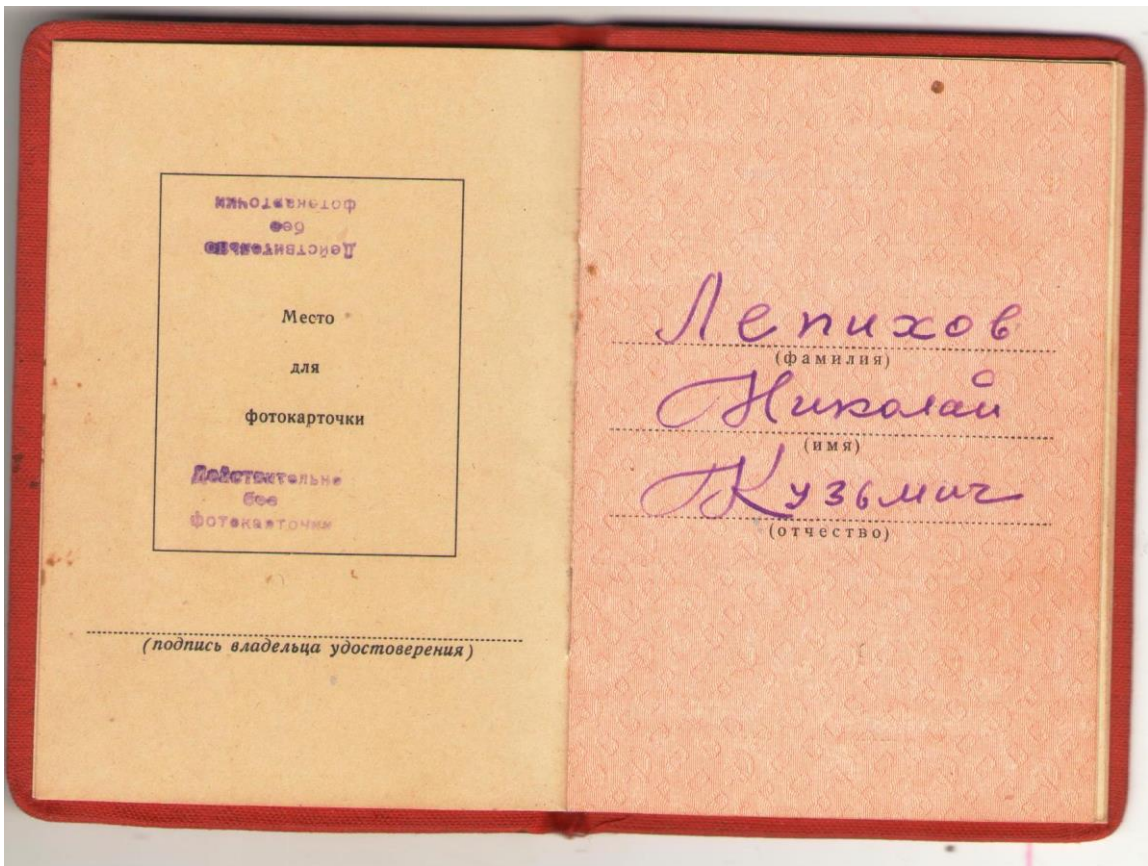 Действительно
бее
фотокарточки
Место
для
фотокарточки
Действительно
бее
фотокарточки
(подпись владельца удостоверения)
Лепихов
(фамилия)
Николай
(имя)
Кузьмич
(отчество)